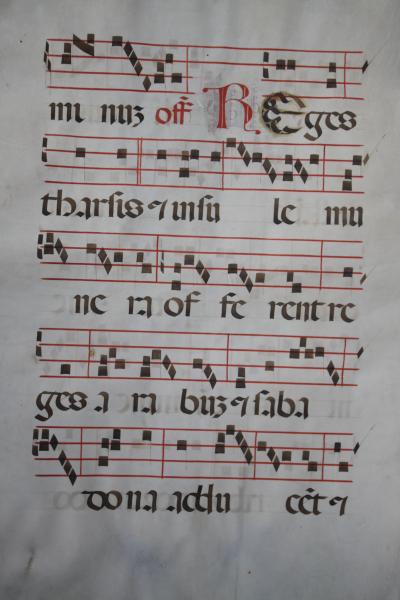 mi nuz off̄ REges
tharsis ⁊ insu le mu
ne ra of fe rent re
ges a ra buz ⁊ saba
do na addu cēt ⁊